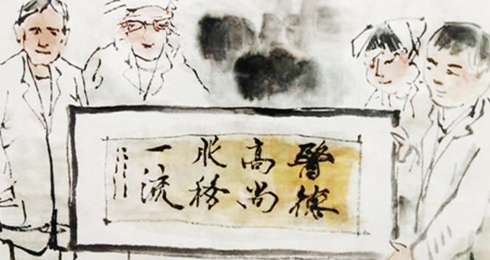 醫德
高尚
服務
一流